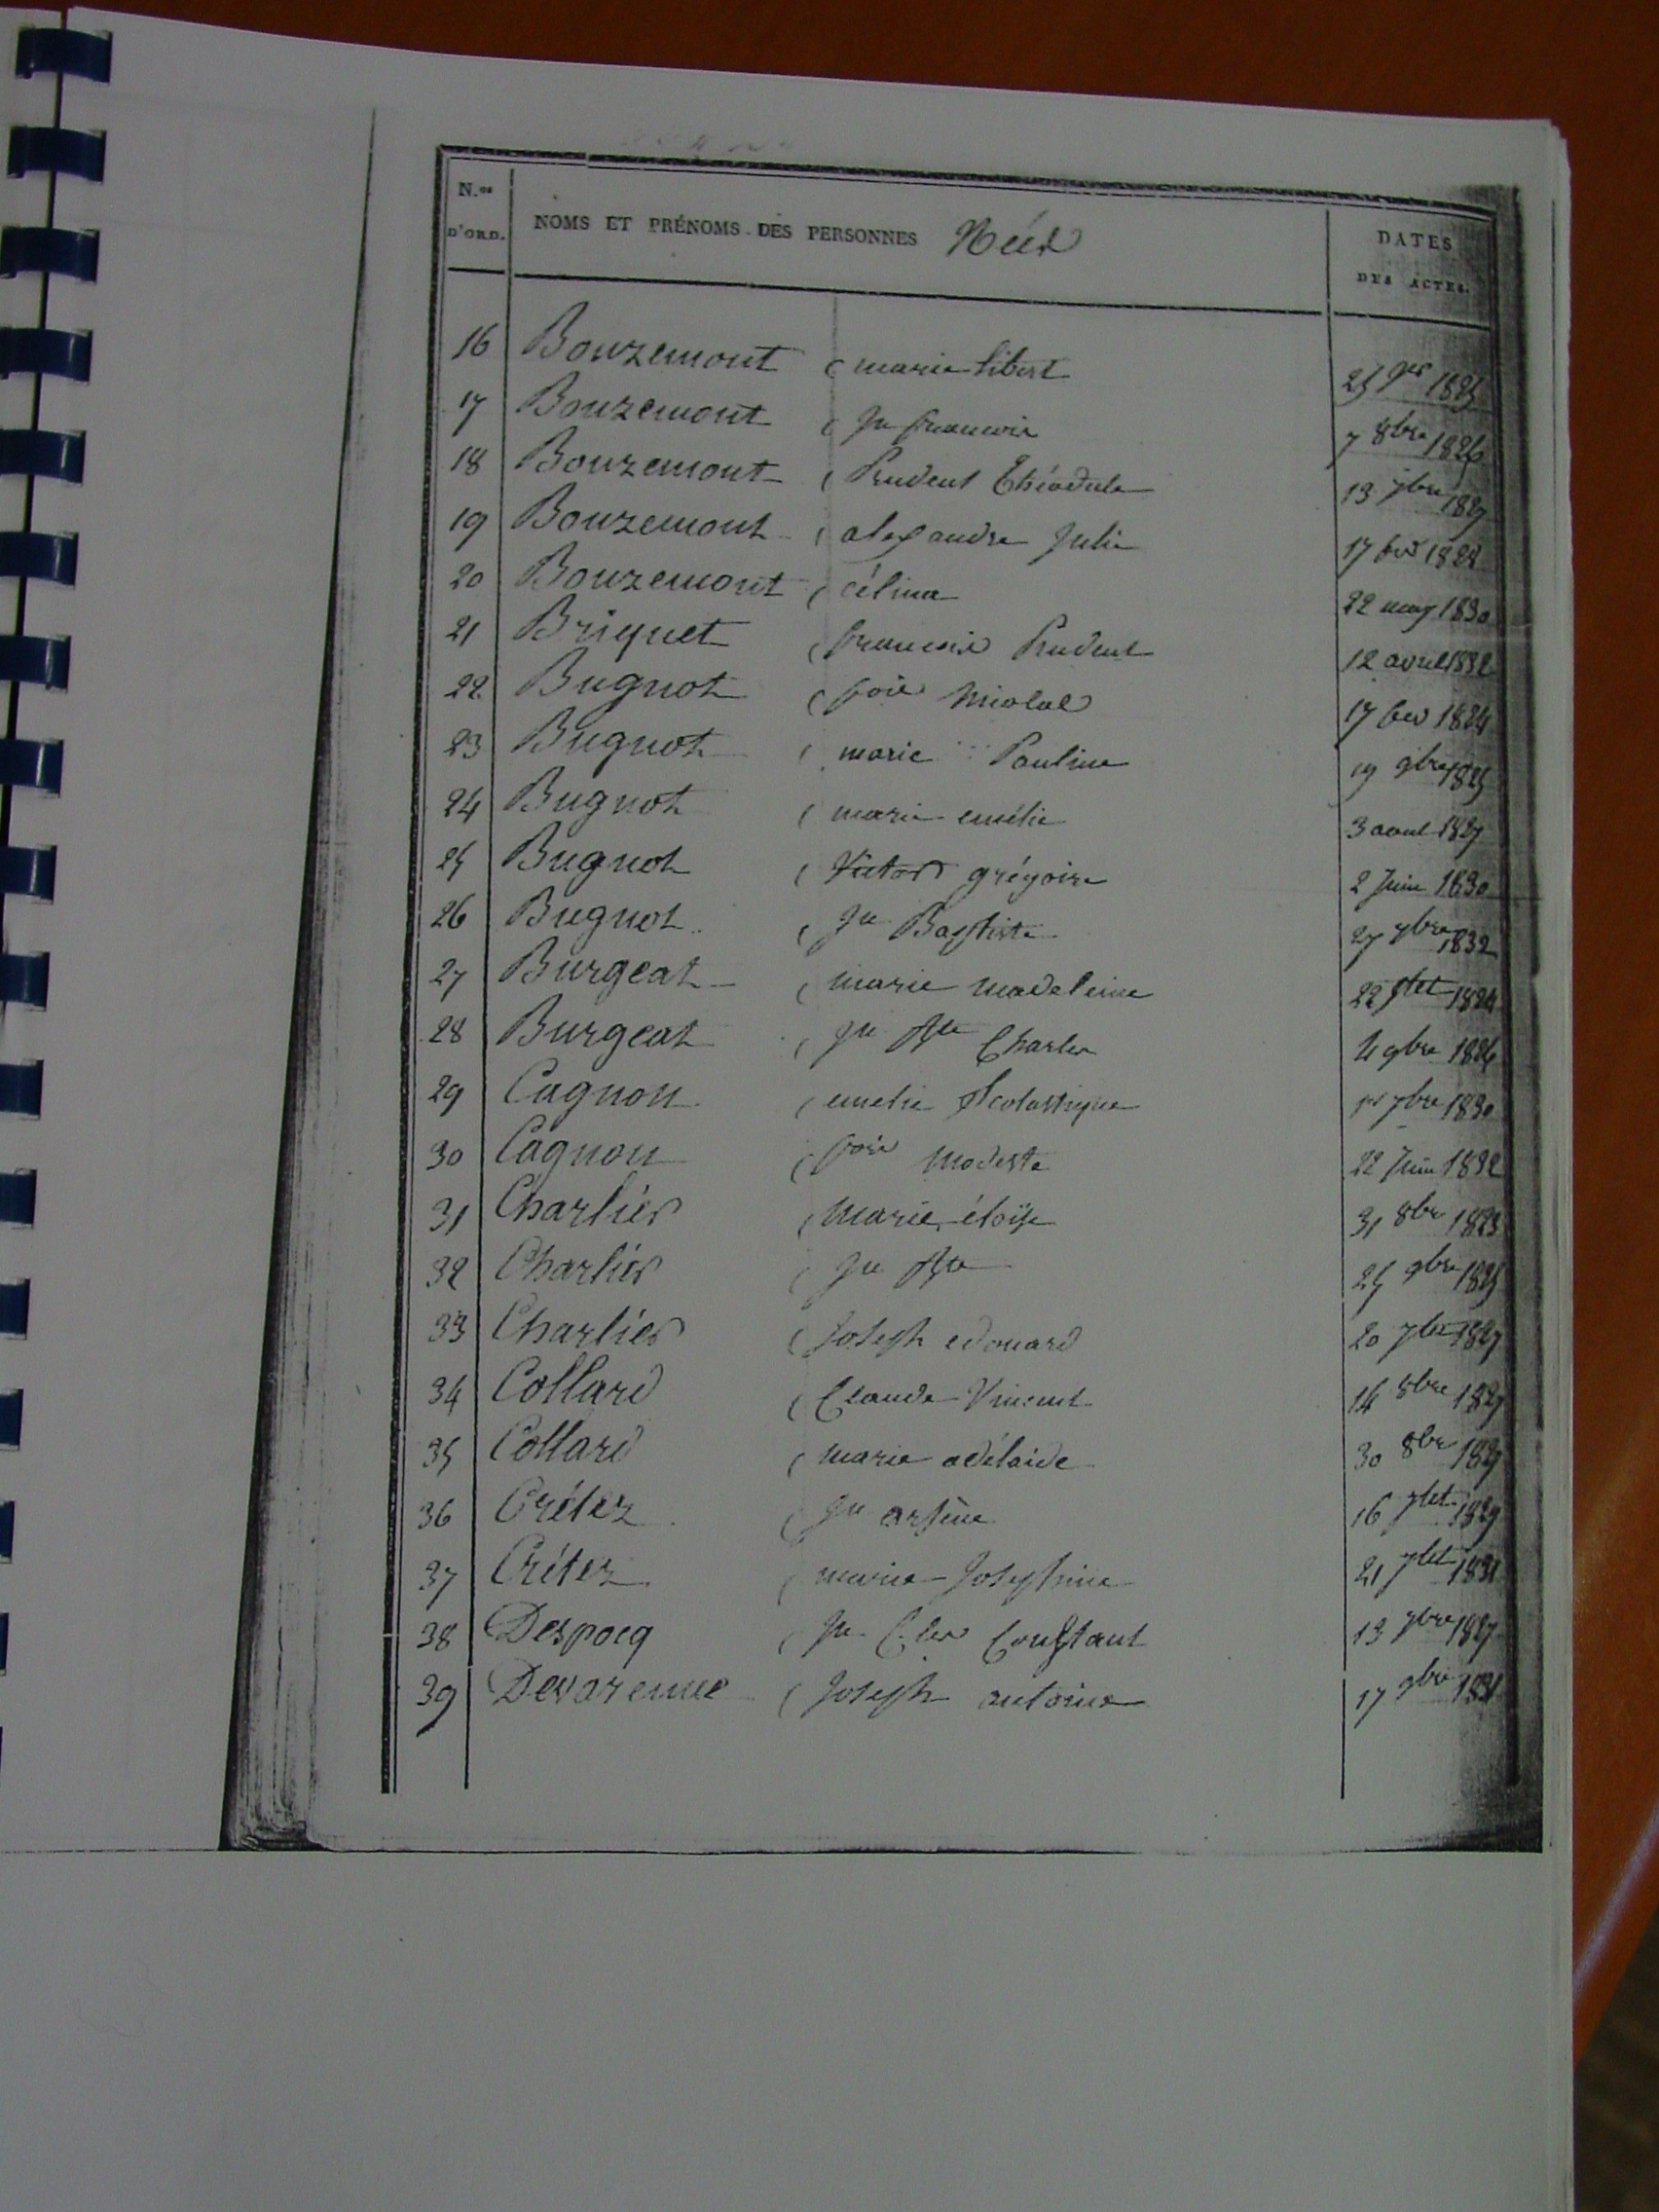 N.os D'ORD. NOMS ET PRÉNOMS DES PERSONNES Néés DATES DES ACTES.
16 Bouzemont ( marie libert 25 1825
17 Bouzemont ( Jn francois 7 8bre 1826
18 Bouzemont ( Prudent Théodule 13 7bre 1827
19 Bouzemont ( alexandre Julie 17 1828
20 Bouzemont ( célina 22 may 1830
21 Briquet ( francois Prudent 12 avril 1832
22 Bugnot ( fois nicolas 17 1824
23 Bugnot ( marie Pauline 19 9bre 1825
24 Bugnot ( marie emélie 3 aout 1827
25 Bugnot ( Victor grégoire 2 Juin 1830
26 Bugnot ( Jn Baptiste 27 7bre 1832
27 Burgeat ( marie madeleine 22 Jlet 1824
28 Burgeat ( Jn Bte Charles 4 9bre 1826
29 Cagnon ( emelie Scolastique 1er 7bre 1830
30 Cagnon ( fois modeste 22 Juin 1832
31 Charlier ( marie éloise 31 8bre 1823
32 Charlier ( Jn Bte 25 9bre 1825
33 Charlier ( Joseph edouard 20 1827
34 Collard ( Claude Vincent 14 8bre 1827
35 Collard ( marie adélaide 30 8bre 1829
36 Crétez ( Jn arsène 16 Jlet 1829
37 Crétez ( marie Josephine 21 Jlet 1831
38 Despocq ( Jn Constant 13 1827
39 Devarenne ( Joseph antoine 17 9bre 1831